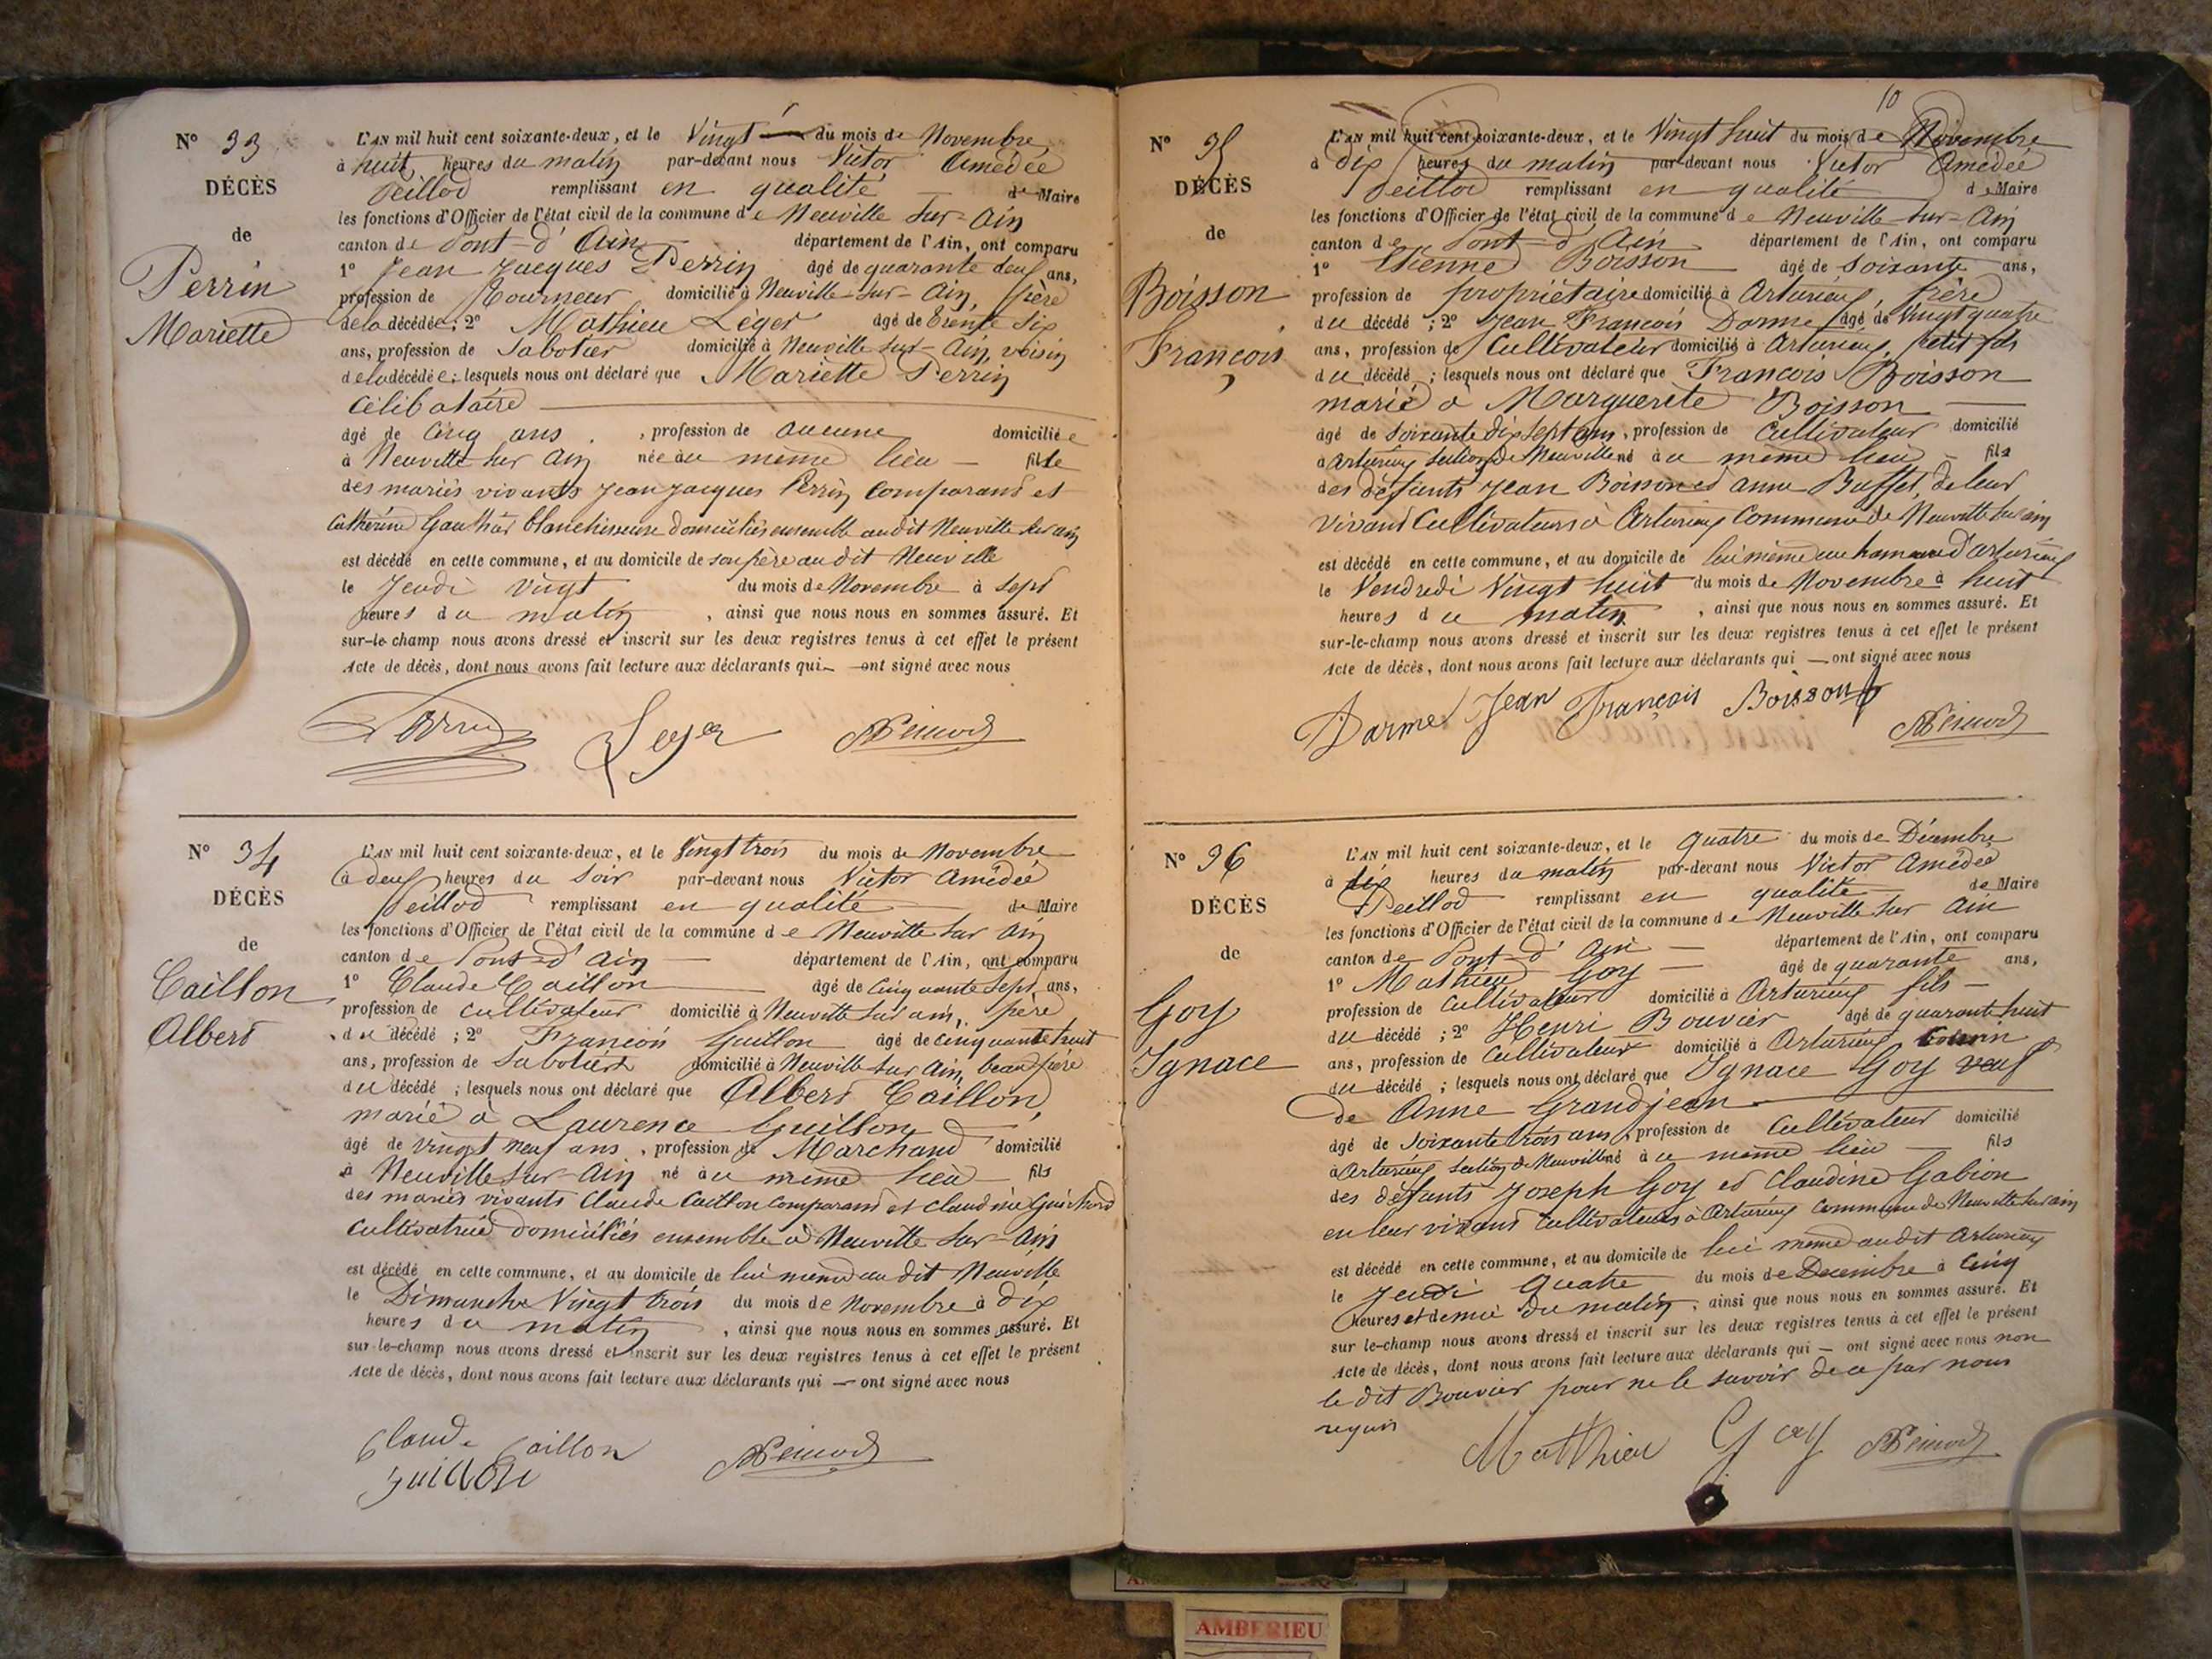 N° 33
DÉCÈS
de
Perrin
Mariette
L'AN mil huit cent soixante-deux, et le Vingt du mois de Novembre
à huit heures du matin par-devant nous Victor Amédée
Peillod remplissant en qualité de Maire
les fonctions d'Officier de l'état civil de la commune de Neuville sur-Ain
canton de Pont-d'Ain département de l'Ain, ont comparu
1° Jean Jacques Perrin âgé de quarante deux ans,
profession de Tourneur domicilié à Neuville-sur-Ain, père
de la décédée; 2° Mathieu Léger âgé de trente six
ans, profession de Sabotier domicilié à Neuville sur-Ain, voisin
de la décédée; lesquels nous ont déclaré que Mariette Perrin
Célibataire
âgé de Cinq ans, profession de aucune domiciliée
à Neuville sur Ain née àu même lieu fille
des mariés vivants Jean Jacques Perrin Comparant et
Catherine Gauthier blanchisseuse domiciliés ensemble audit Neuville sur ain
est décédé en cette commune, et au domicile de son père au dit Neuville
le Jeudi vingt du mois de Novembre à sept
heures du matin, ainsi que nous nous en sommes assuré. Et
sur-le-champ nous avons dressé et inscrit sur les deux registres tenus à cet effet le présent
Acte de décès, dont nous avons fait lecture aux déclarants qui ont signé avec nous
Perrin Leger
N° 34
DÉCÈS
de
Caillon
Albert
L'AN mil huit cent soixante-deux, et le Vingt trois du mois de Novembre
à deux heures du Soir par-devant nous Victor Amédée
Peillod remplissant en qualité de Maire
les fonctions d'Officier de l'état civil de la commune de Neuville sur Ain
canton de Pont-d'Ain département de l'Ain, ont comparu
1° Claude Caillon âgé de Cinquante sept ans,
profession de cultivateur domicilié à Neuville sur ain, père
du décédé; 2° François Guillon âgé de cinquante huit
ans, profession de Sabotier domicilié à Neuville sur Ain, beau père
du décédé; lesquels nous ont déclaré que Albert Caillon,
marié à Laurence Guillon
âgé de vingt neuf ans, profession de Marchand domicilié
à Neuville sur-Ain né àu même lieu fils
des mariés vivants Claude Caillon comparant et Claudine Guichard
cultivatrice domiciliés ensemble à Neuville sur-Ain
est décédé en cette commune, et au domicile de lui même au dit Neuville
le Dimanche Vingt trois du mois de Novembre à dix
heures du matin, ainsi que nous nous en sommes assuré. Et
sur-le-champ nous avons dressé et inscrit sur les deux registres tenus à cet effet le présent
Acte de décès, dont nous avons fait lecture aux déclarants qui — ont signé avec nous
Claude Caillon
guillon
10
N° 35
DÉCÈS
de
Boisson
François
L'AN mil huit cent soixante-deux, et le Vingt huit du mois de Novembre
à dix heures du matin par-devant nous Victor Amédée
Peillod remplissant en qualité de Maire
les fonctions d'Officier de l'état civil de la commune de Neuville-sur-Ain
canton de Pont-d'Ain département de l'Ain, ont comparu
1° Etienne Boisson âgé de soixante ans,
profession de propriétaire domicilié à Arturieux, frère
du décédé; 2° Jean François Darme âgé de vingt quatre
ans, profession de Cultivateur domicilié à Arturieux, petit fils
du décédé; lesquels nous ont déclaré que François Boisson
marié à Marguerite Boisson
âgé de Soixante dix sept ans, profession de Cultivateur domicilié
à Arturieux section de Neuville né àu même lieu fils
des défunts Jean Boisson et anne Buffet, de leur
vivant Cultivateurs à Arturieux Commune de Neuville sur ain
est décédé en cette commune, et au domicile de lui même au hameau d'arturieux
le Vendredi Vingt huit du mois de Novembre à huit
heures du matin, ainsi que nous nous en sommes assuré. Et
sur-le-champ nous avons dressé et inscrit sur les deux registres tenus à cet effet le présent
Acte de décès, dont nous avons fait lecture aux déclarants qui — ont signé avec nous
Darme Jean François Boisson
N° 36
DÉCÈS
de
Goy
Ignace
L'AN mil huit cent soixante-deux, et le quatre du mois de Décembre
à dix heures du matin par-devant nous Victor Amédée
Peillod remplissant en qualité de Maire
les fonctions d'Officier de l'état civil de la commune de Neuville sur Ain
canton de Pont-d'Ain département de l'Ain, ont comparu
1° Mathieu Goy âgé de quarante ans,
profession de Cultivateur domicilié à Arturieux fils
du décédé; 2° Henri Bouvier âgé de quarante huit
ans, profession de Cultivateur domicilié à Arturieux Cousin
du décédé; lesquels nous ont déclaré que Ignace Goy veuf
de Anne Grandjean
âgé de Soixante trois ans, profession de Cultivateur domicilié
à Arturieux section de Neuville né àu même lieu fils
des défunts Joseph Goy et Claudine Gabion
en leur vivant cultivateurs à Arturieux commune de Neuville sur ain
est décédé en cette commune, et au domicile de lui même audit Arturieux
le Jeudi quatre du mois de Decembre à Cinq
heures et demie du matin, ainsi que nous nous en sommes assuré. Et
sur le-champ nous avons dressé et inscrit sur les deux registres tenus à cet effet le présent
Acte de décès, dont nous avons fait lecture aux déclarants qui — ont signé avec nous non
le dit Bouvier pour ne le savoir de ce par nous
requis
Matthieu Goy
AMBERIEU